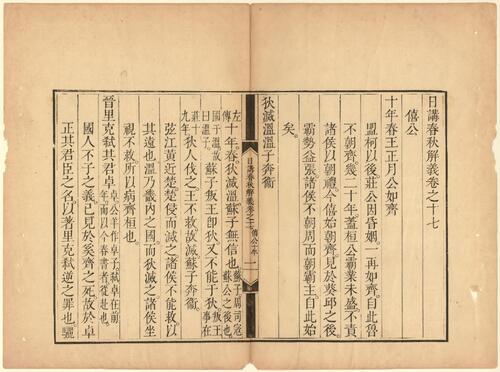 日講春秋解義卷之十七
僖公
十年春王正月公如齊
盟柯以後莊公因昏姻一再如齊自此魯
不朝齊幾二十年蓋桓公霸業未盛不責
諸侯以朝禮今僖始朝齊見於葵邱之後
霸勢益張諸侯不朝周而朝霸主自此始
矣
狄滅溫溫子奔衞
日講春秋解義 卷之十七 僖公十年 一
左傳十年春狄滅溫蘇子無信也蘇子周司寇蘇公之後也
國于溫故曰溫子蘇子叛王即狄又不能于狄叛王事在
莊十九年狄人伐之王不救故滅蘇子奔衞
弦江黃近楚楚侵而滅之諸侯不能救以
其遠也溫乃畿內之國而狄滅之諸侯坐
視不救所以病齊桓也
晉里克弒其君卓卓公羊作卓子弒卓在前年而以今春書者從赴也
國人不子之義已見於奚齊之死故於卓
正其君臣之名以著里克弒逆之罪也驪